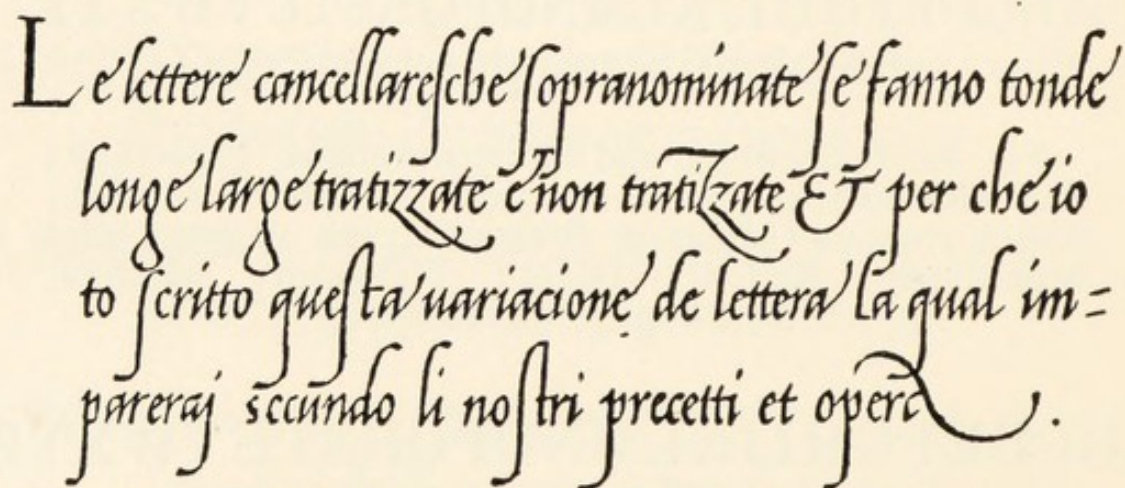 Le lettere cancellaresche sopranominate se fanno tonde
longe large tratizzate e non tratizzate & per che io
to scritto questa uariacione de lettera la qual im=
pareraj secundo li nostri precetti et opera .